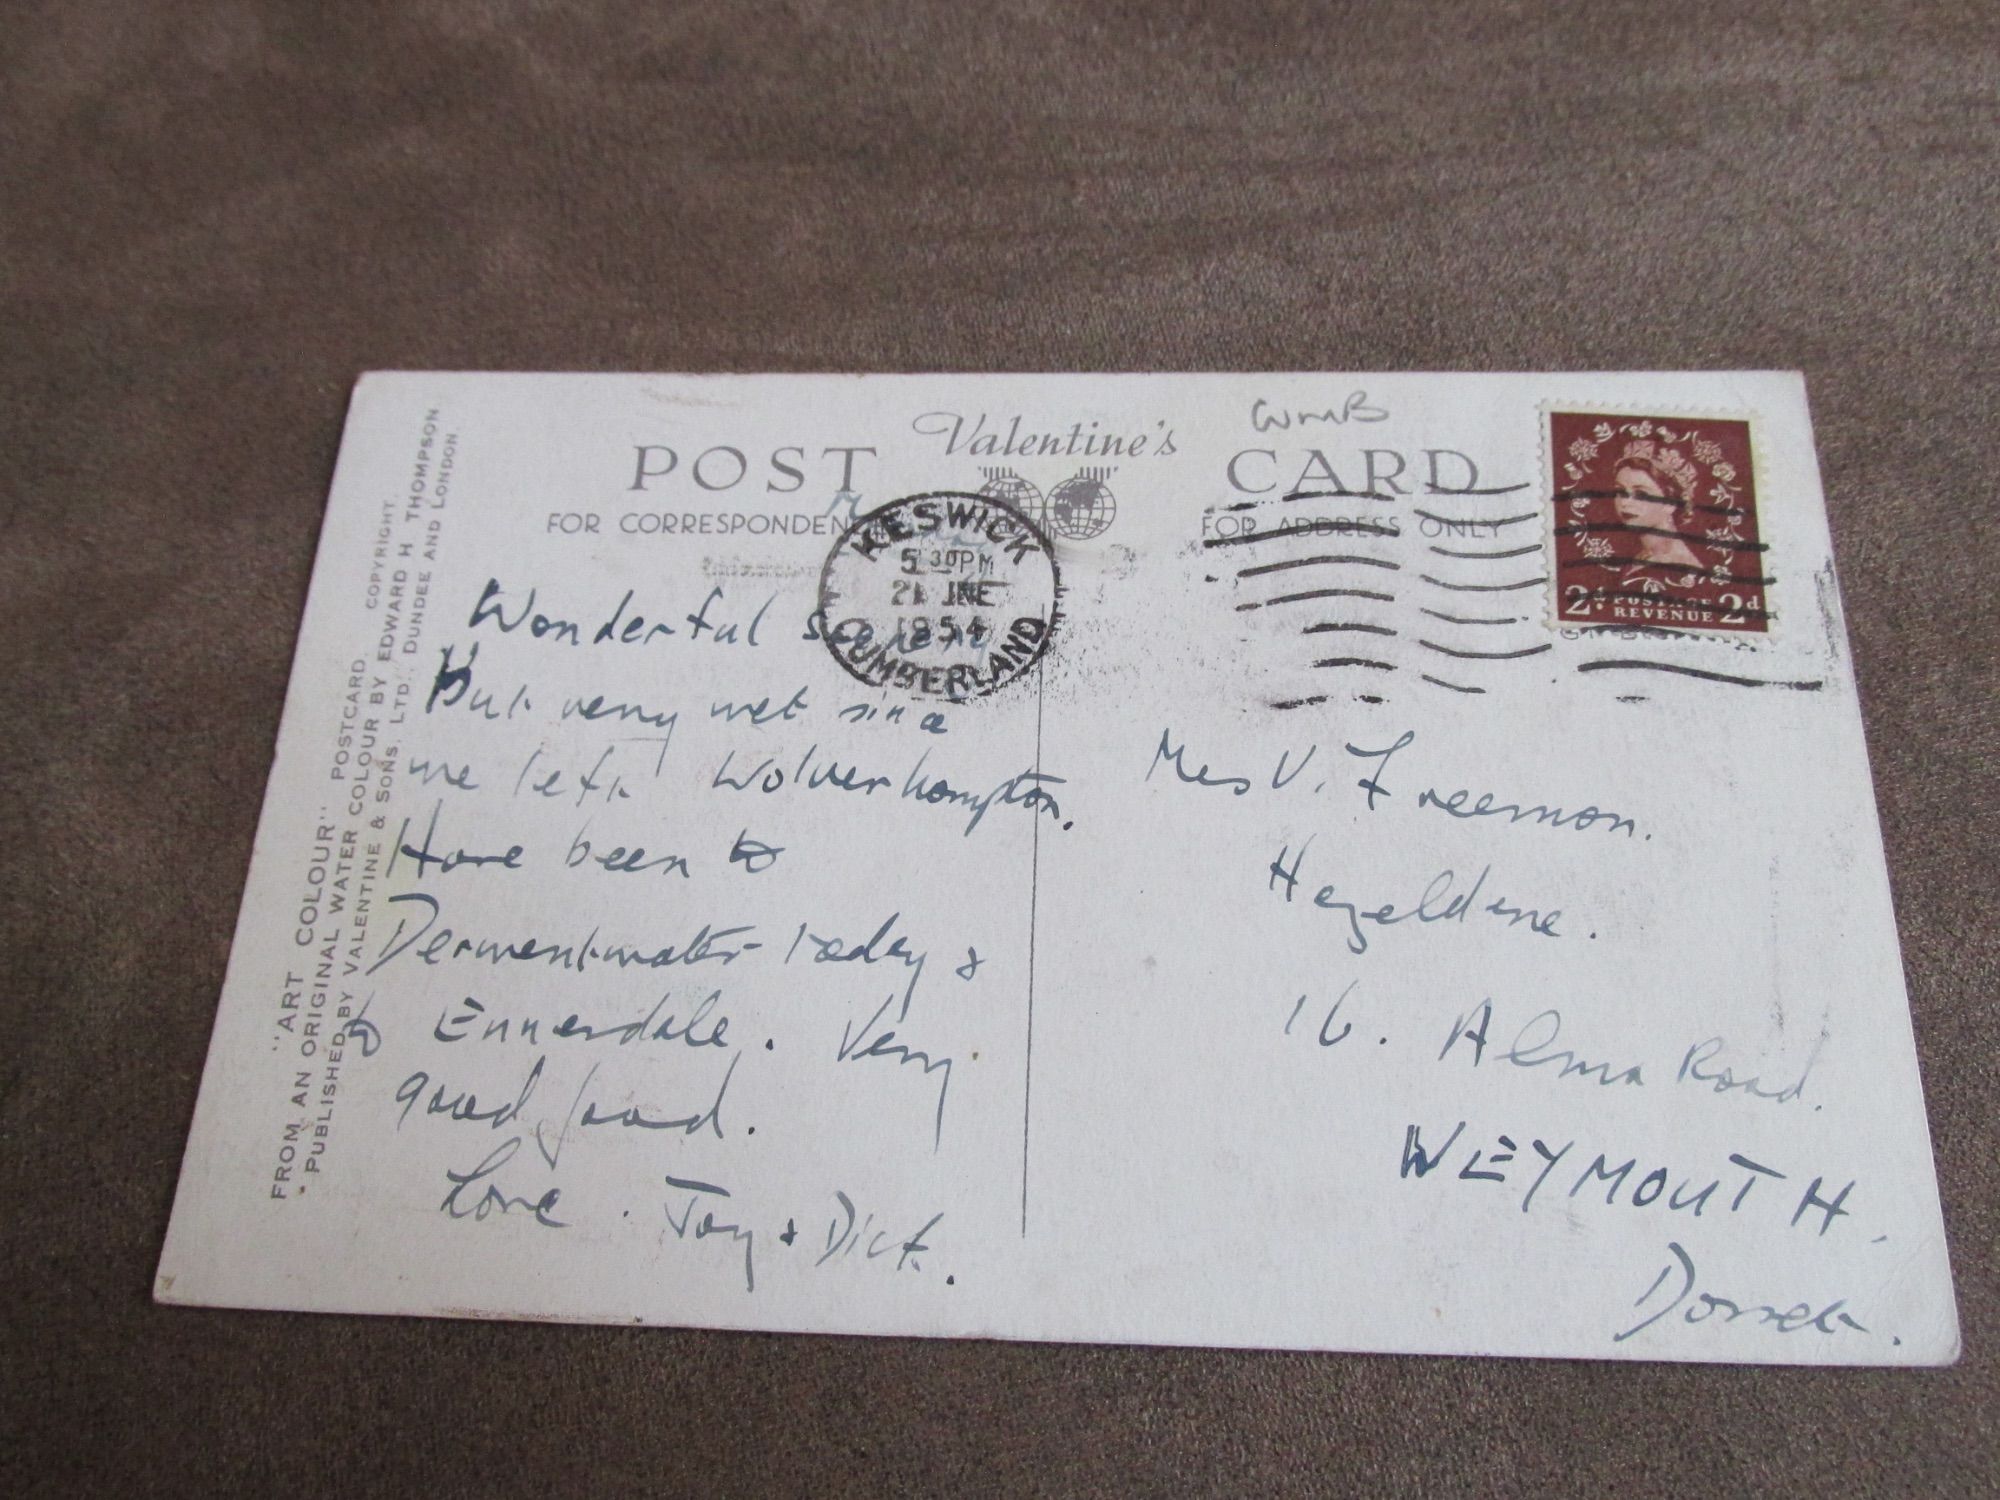 Valentine's
POST CARD
FOR CORRESPONDEN
FOR ADDRESS ONLY
CumB
KESWICK
5 30PM
21 JNE
1954
CUMBERLAND
2d POSTAGE 2d
REVENUE
Wonderful scenery
But very wet since
we left Wolverhampton.
Have been to
Derwentwater today &
Ennerdale. Very
good food.
Love. Joy & Dick.
Mrs V. Freeman.
Hazeldene.
16. Alma Road.
WEYMOUTH.
Dorset.
FROM AN "ART COLOUR" POSTCARD. COPYRIGHT.
PUBLISHED BY ORIGINAL WATER COLOUR BY EDWARD H THOMPSON
VALENTINE & SONS, LTD., DUNDEE AND LONDON.